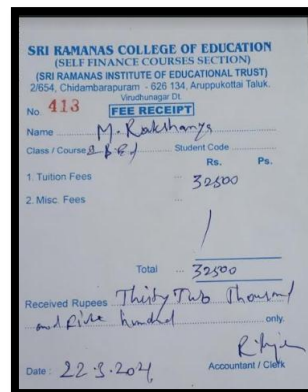 SRI RAMANAS COLLEGE OF EDUCATION
(SELF FINANCE COURSES SECTION)
(SRI RAMANAS INSTITUTE OF EDUCATIONAL TRUST)
2/654, Chidambarapuram - 626 134, Aruppukottai Taluk.
Virudhunagar Dt.
No. 413 FEE RECEIPT
Name M. Rakshanya
Class / Course Student Code
Rs. Ps.
1. Tuition Fees ... 32500
2. Misc. Fees ...
Total ... 32500
Received Rupees Thirty Two Thousand
and five hundred only.
Date : 22.3.2021 Accountant / Clerk